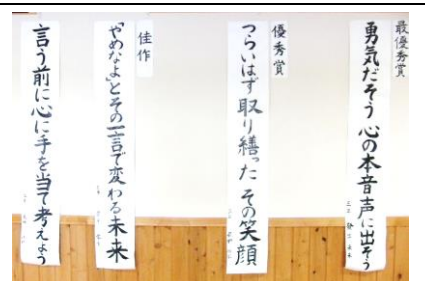 最優秀賞
勇気だそう 心の本音声に出そう
優秀賞
つらいはず 取り繕った その笑顔
佳作
「やめなよ」とその一言で変わる未来
言う前に心に手を当て考えよう